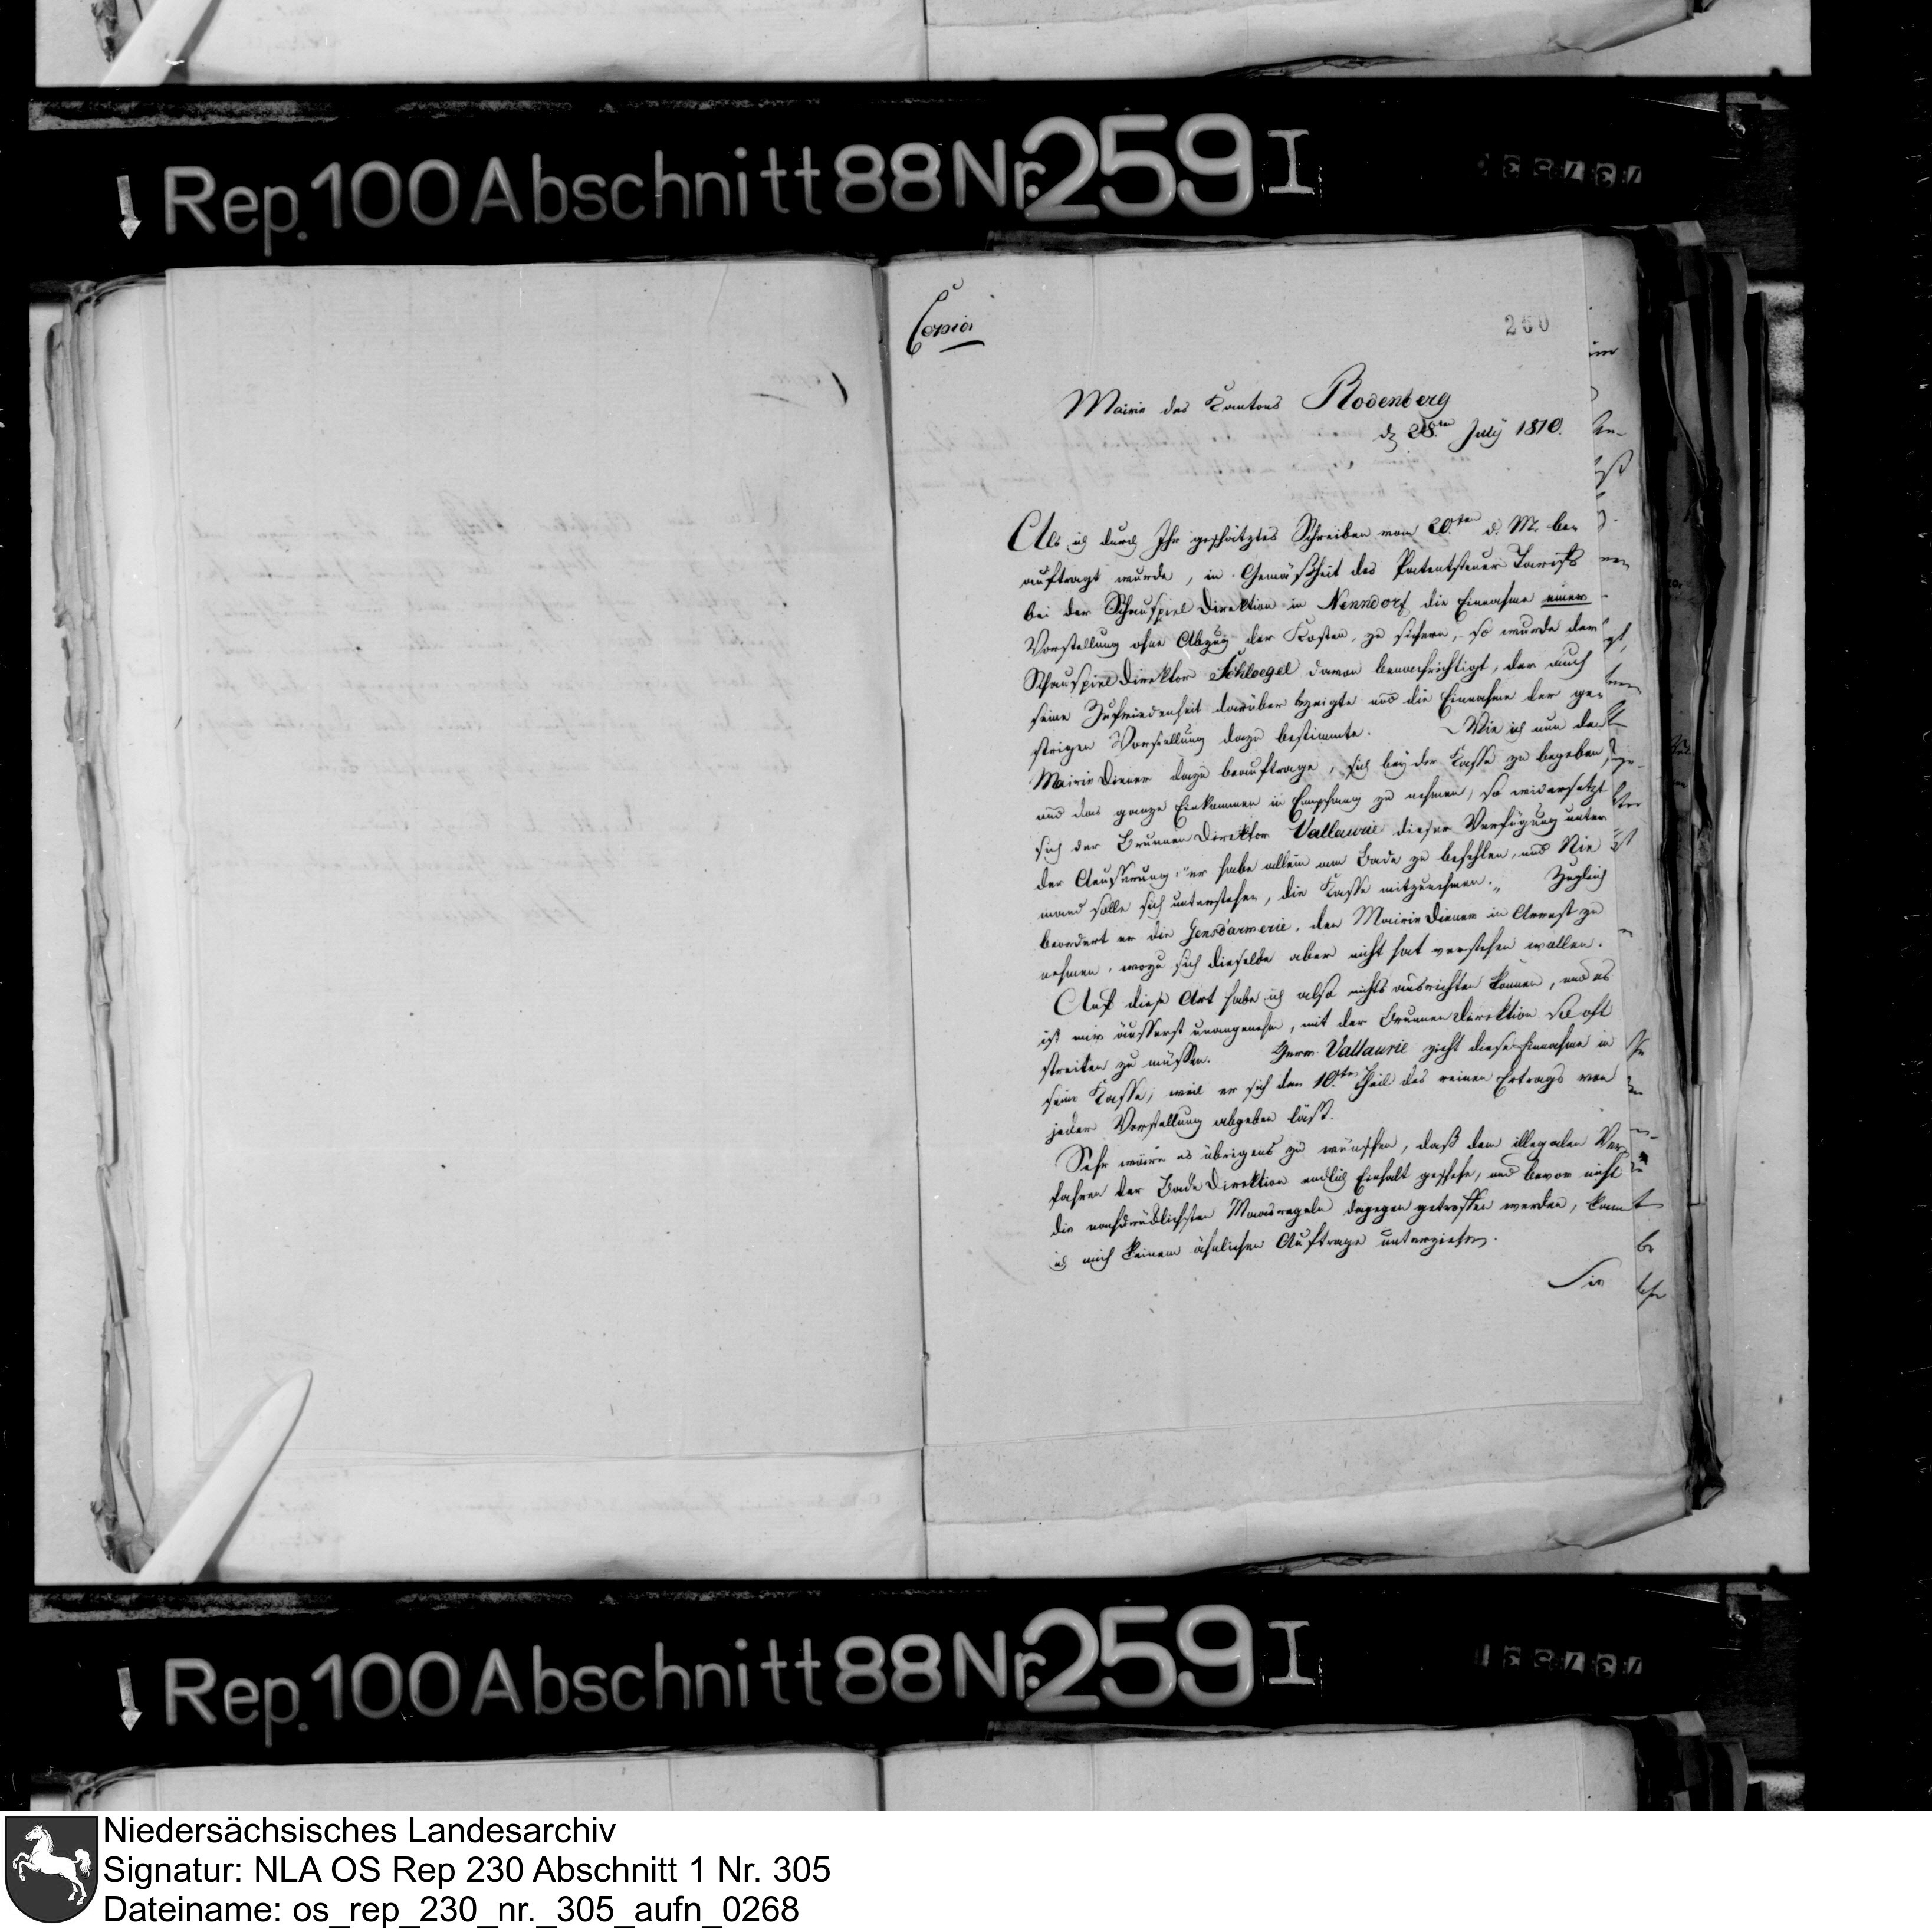 Rep. 100 Abschnitt 88 Nr. 259 I
Copia
260
Mairie des Kantons Rodenberg
d 28.ten July 1810.
Als ich durch Ihr geschätztes Schreiben vom 20.ten d. M. be-
auftragt wurde, in Gemäßheit des Patentsteuer Tarifs
bei der Schauspiel Direktion in Nenndorf die Einnahme einer
Vorstellung ohne Abzug der Kosten, zu sichern, so wurde der
Schauspiel Direktor Schloegel davon benachrichtigt, der auch
seine Zufriedenheit darüber bezeigte und die Einnahme der ge-
strigen Vorstellung dazu bestimmte. Wie ich nun den
Mairie Diener dazu beauftrage, sich bey der Kasse zu begeben,
und das ganze Einkommen in Empfang zu nehmen, so widersetzt
sich der Brunnen Direktor Vallaurie dieser Verfügung unter
der Aeusserung: "er habe allein am Bade zu befehlen, und Nie
mand solle sich unterstehen, die Kasse mitzunehmen." Zugleich
beordert er die Gensd'armerie, den Mairie Diener in Arrest zu
nehmen, wozu sich dieselbe aber nicht hat verstehen wollen.
Auf diese Art habe ich also nichts ausrichten können, und es
ist mir äusserst unangenehm, mit der Brunnen Direktion so oft
streiten zu müssen. Herr Vallaurie zieht diese Einnahme in
seine Kasse, weil er sich den 10.ten Theil des reinen Ertrags von
jeder Vorstellung abgeben läßt.
Sehr wäre es übrigens zu wünschen, daß dem illegalen Ver-
fahren der Bade Direktion endlich Einhalt geschehe, und bevor nicht
die nachdrücklichsten Maasregeln dagegen getroffen werden, kann
ich mich keinem ähnlichen Auftrage unterziehen.
Sie
Rep. 100 Abschnitt 88 Nr. 259 I
Niedersächsisches Landesarchiv
Signatur: NLA OS Rep 230 Abschnitt 1 Nr. 305
Dateiname: os_rep_230_nr._305_aufn_0268